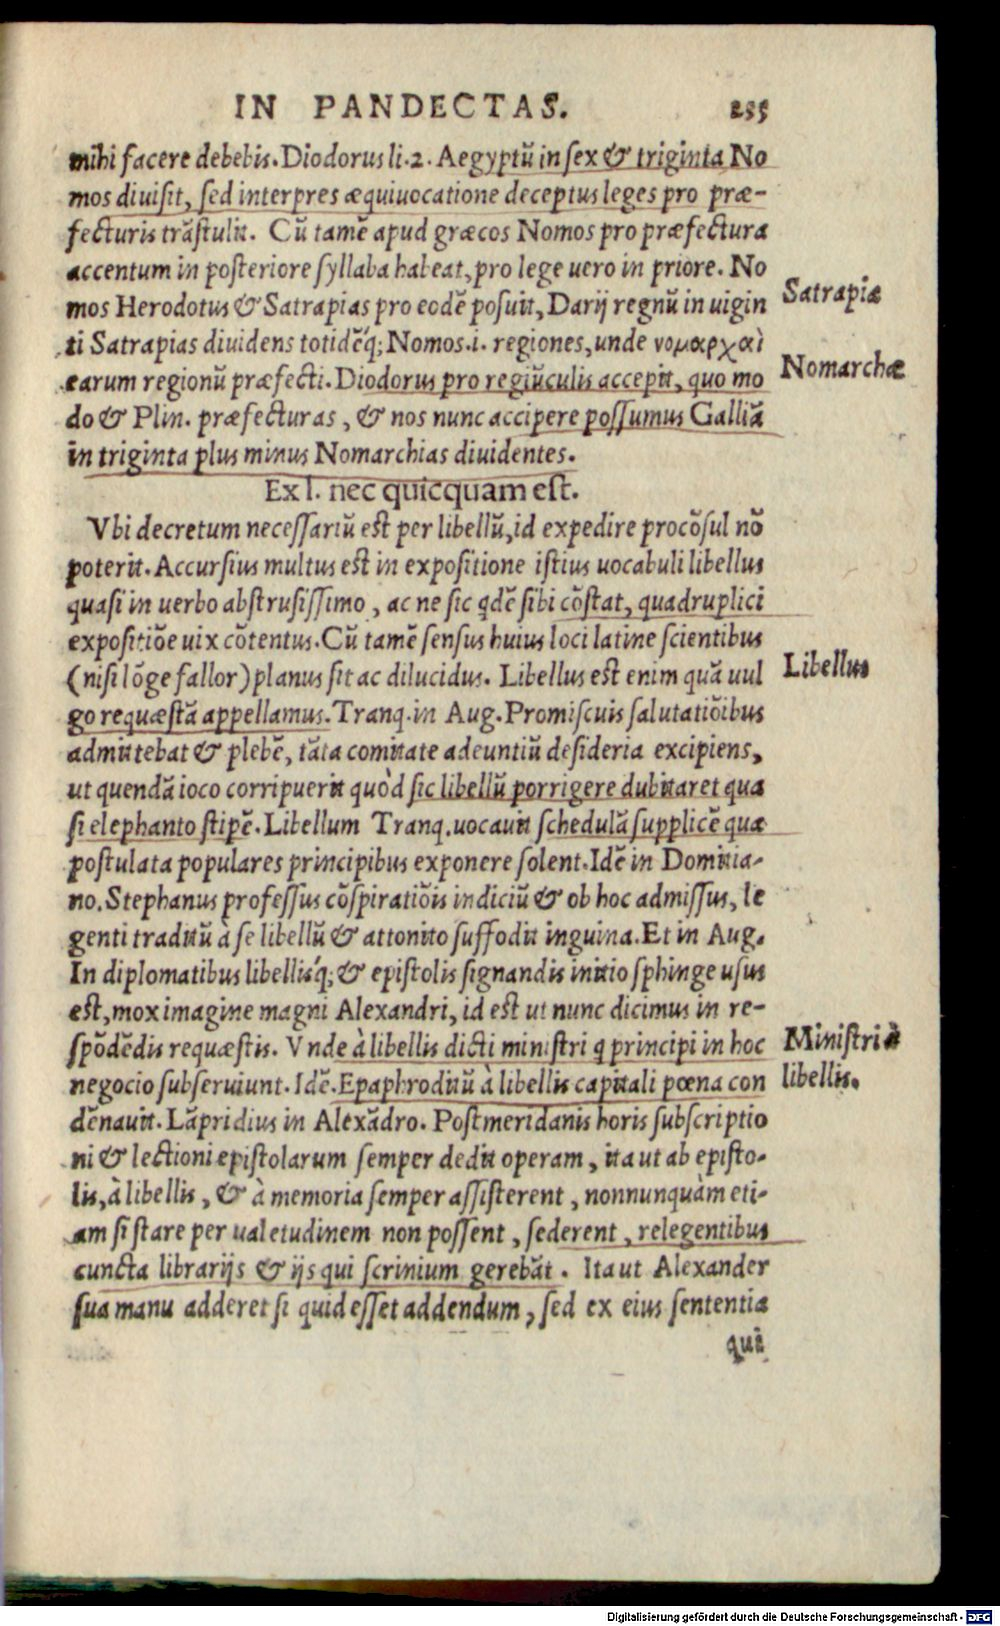 IN PANDECTAS. 235
mihi facere debebis. Diodorus li. 2. Aegyptũ in sex & triginta No
mos diuisit, sed interpres æquiuocatione deceptus leges pro præ-
fecturis trãstulit. Cũ tamẽ apud græcos Nomos pro præfectura
accentum in posteriore syllaba habeat, pro lege uero in priore. No
mos Herodotus & Satrapias pro eodẽ posuit, Darij regnũ in uigin
ti Satrapias diuidens totidẽq; Nomos .i. regiones, unde νομαρχαὶ
earum regionũ præfecti. Diodorus pro regiũculis accepit, quo mo
do & Plin. præfecturas, & nos nunc accipere possumus Galliã
in triginta plus minus Nomarchias diuidentes.
Satrapiæ
Nomarchæ
Ex l. nec quicquam est.
Vbi decretum necessariũ est per libellũ, id expedire procõsul nõ
poterit. Accursius multus est in expositione istius uocabuli libellus
quasi in uerbo abstrusissimo, ac ne sic qdẽ sibi cõstat, quadruplici
expositiõe uix cõtentus. Cũ tamẽ sensus huius loci latine scientibus
(nisi lõge fallor) planus sit ac dilucidus. Libellus est enim quã uul
go requæstã appellamus. Tranq. in Aug. Promiscuis salutatiõibus
admittebat & plebẽ, tãta comitate adeuntiũ desideria excipiens,
ut quendã ioco corripuerit quòd sic libellũ porrigere dubitaret qua
si elephanto stipẽ. Libellum Tranq. uocauit schedulã supplicẽ quæ
postulata populares principibus exponere solent. Idẽ in Domitia-
no. Stephanus professus cõspiratiõis indiciũ & ob hoc admissus, le
genti traditũ à se libellũ & attonito suffodit inguina. Et in Aug.
In diplomatibus libellisq; & epistolis signandis initio sphinge usus
est, mox imagine magni Alexandri, id est ut nunc dicimus in re-
spõdẽdis requæstis. Vnde à libellis dicti ministri q principi in hoc
negocio subseruiunt. Idẽ. Epaphroditũ à libellis capitali pœna con
dẽnauit. Lãpridius in Alexãdro. Postmeridanis horis subscriptio
ni & lectioni epistolarum semper dedit operam, ita ut ab episto-
lis, à libellis, & à memoria semper assisterent, nonnunquàm eti-
am si stare per ualetudinem non possent, sederent, relegentibus
cuncta librarijs & ijs qui scrinium gerebãt. Ita ut Alexander
sua manu adderet si quid esset addendum, sed ex eius sententia
qui
Libellus
Ministri à
libellis.
Digitalisierung gefördert durch die Deutsche Forschungsgemeinschaft - DFG